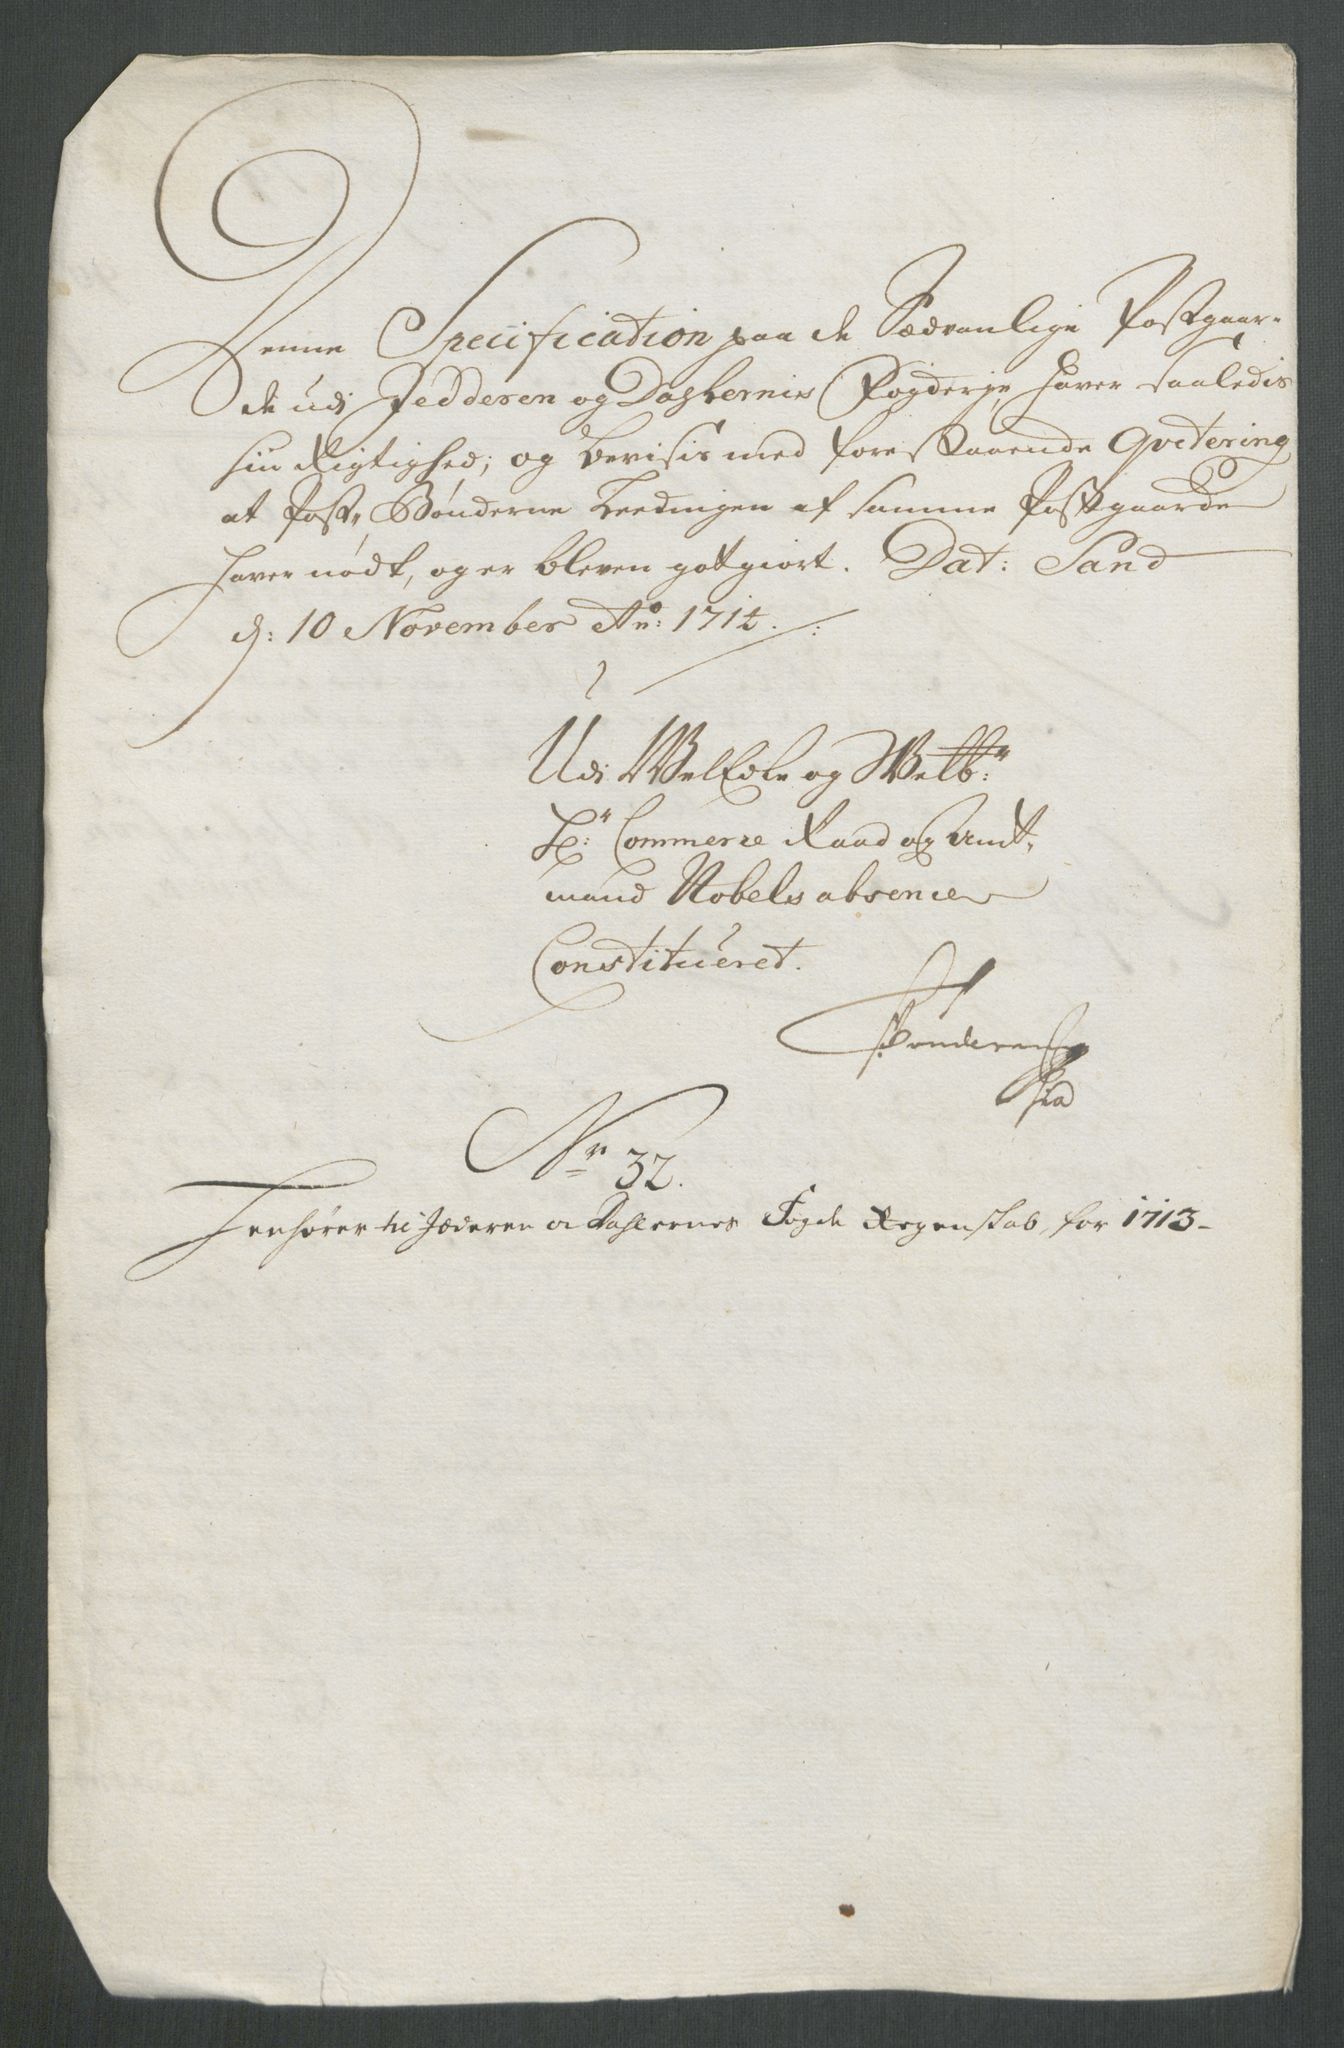 Denne Specification paa de Sædvanlige Postgaar-
de udi Jedderen og Dahlernis Fogderje haver saaledis
sin Rigtighed; og bevisis med forestaaende Qvitering
at Post, Bønderne Leedingen af samme Postgaarde
haver nødt, og er bleven gottgiort. Dat: Sand
d: 10 November Ao: 1714.
Udi WelEdle og Welb:r
Hr: Commerce Raad og Amt,
mand Nobels absence
Constitueret.
Nr 32.
Henhører til Jæderen og Dahlernes Fogde Regenskab for 1713-